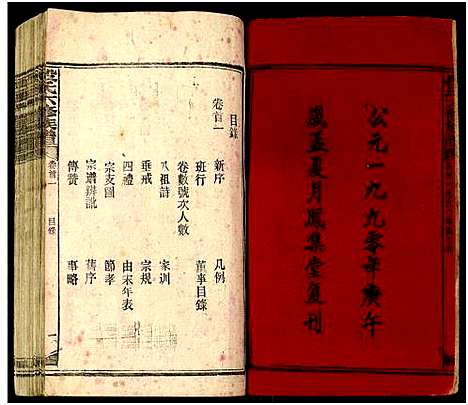 公元一九九零年庚午
歲孟夏月鳳集堂复刊
目錄
卷首一
新序 凡例
班行 董事目錄
卷數號次人數
八祖詩 家训
垂戒 宗規
四禮 由宋年表
宗支圖 節孝
宗譜辨訛 舊序
傳贊 事略
卷首一 目錄